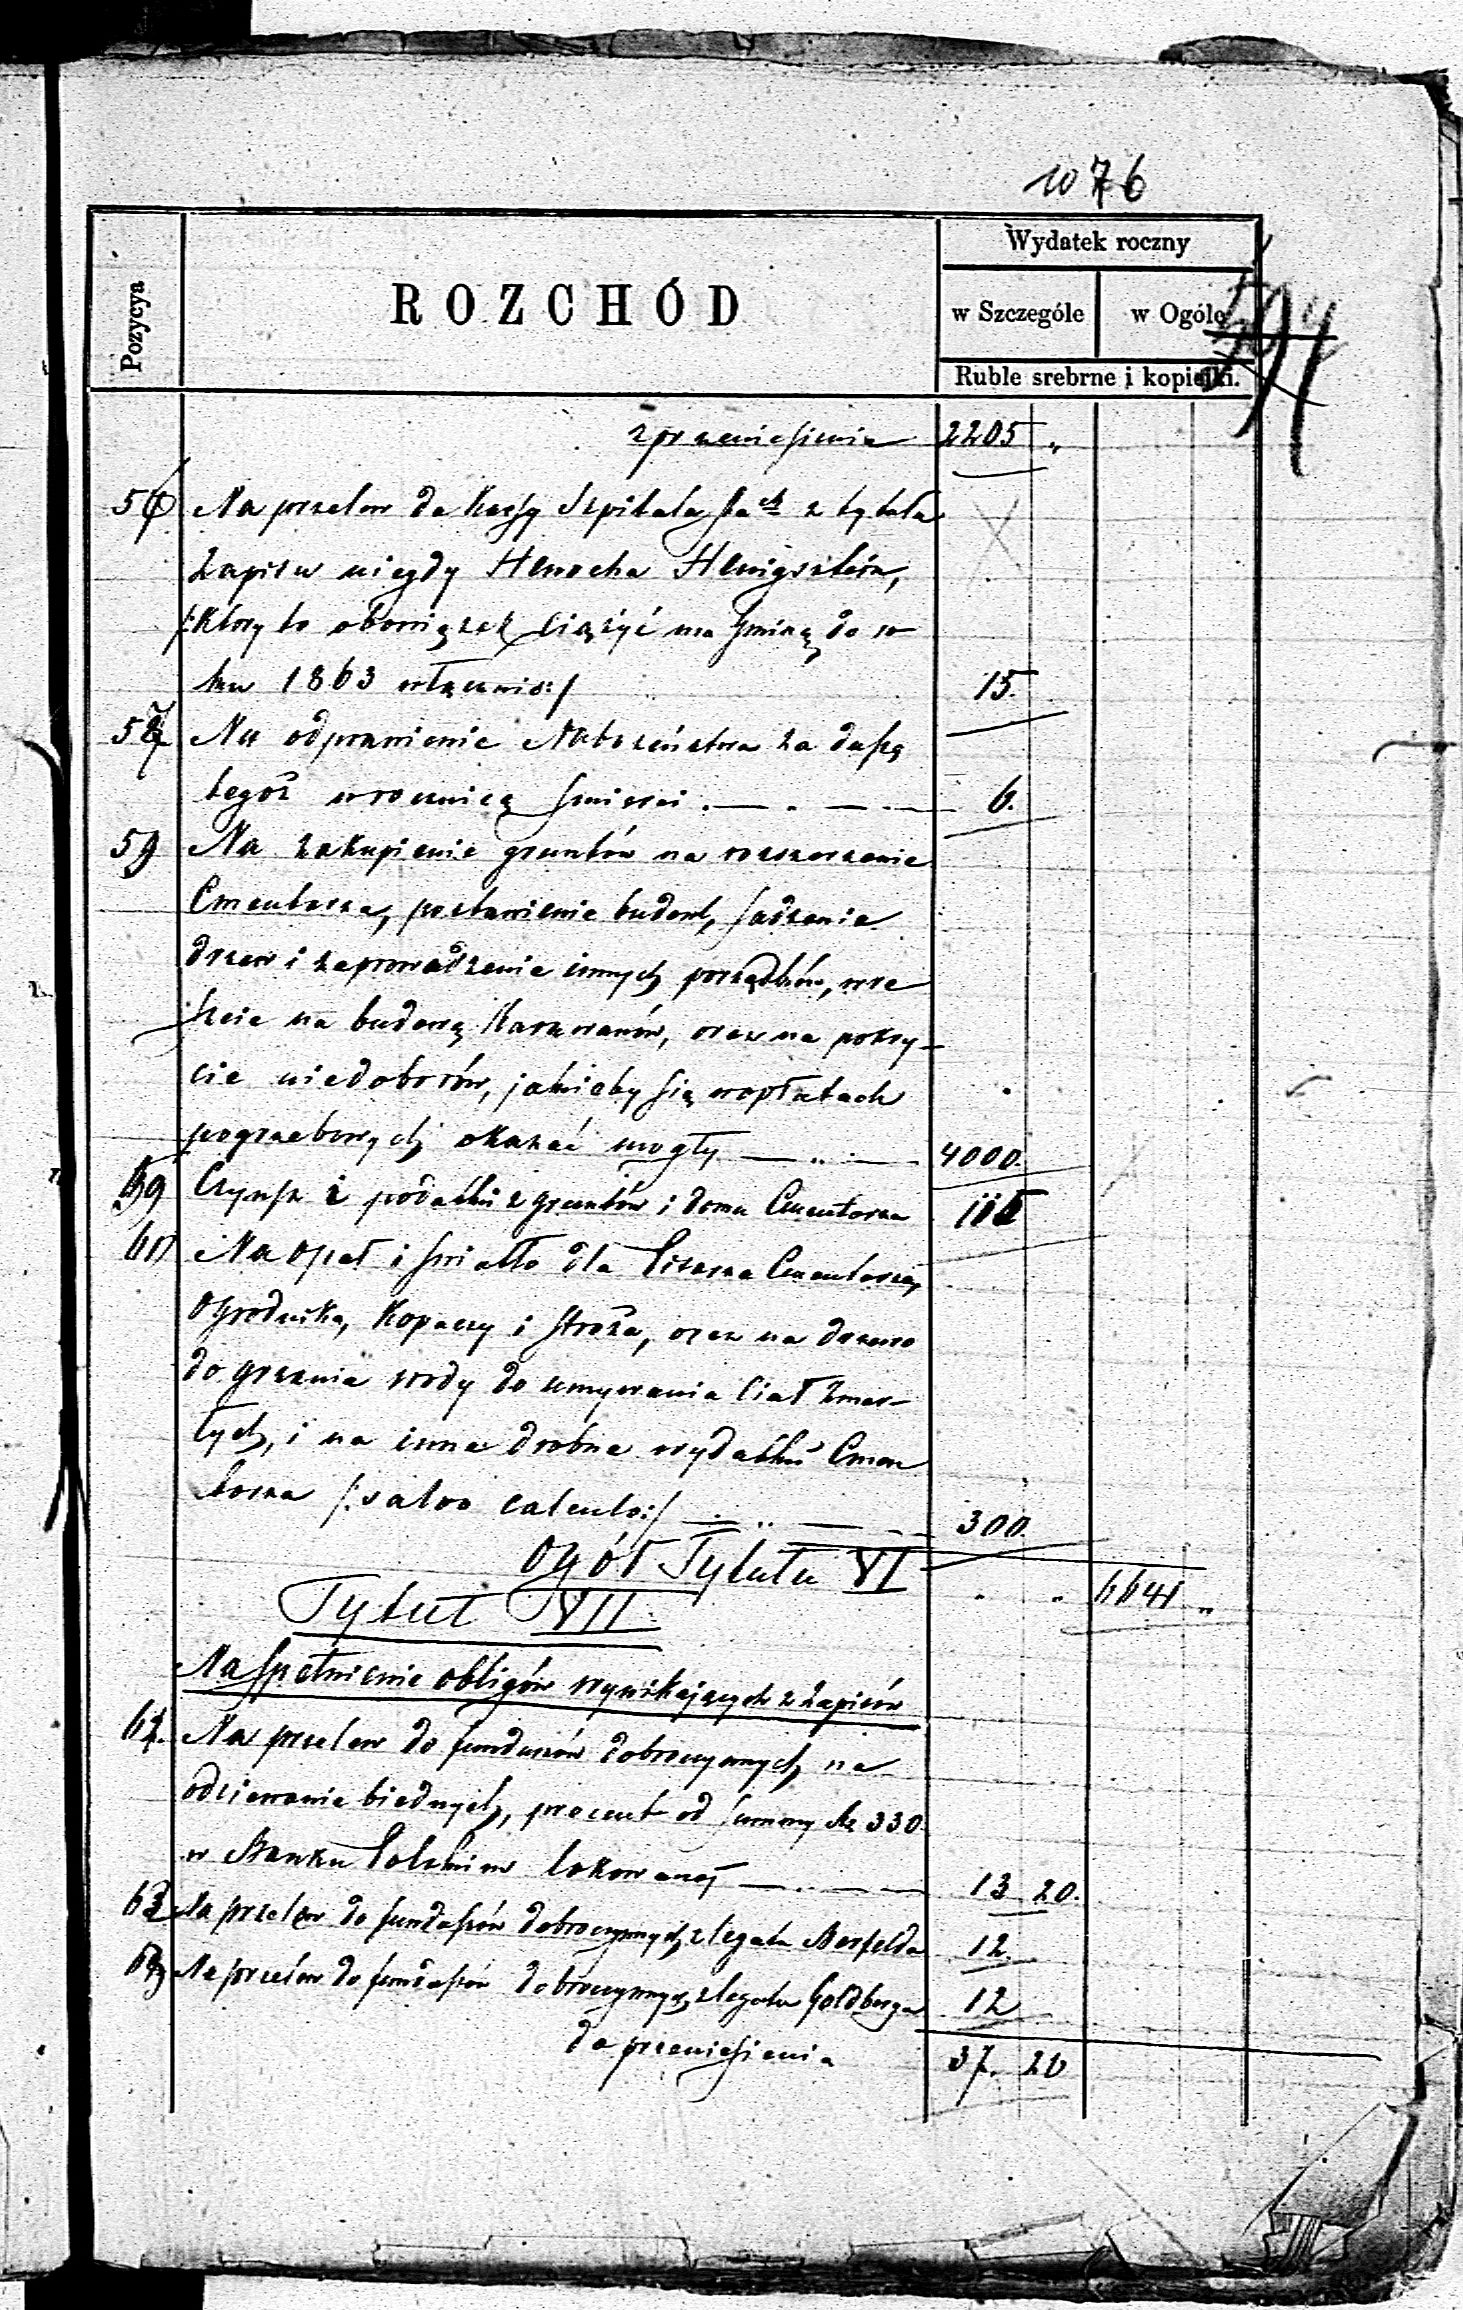 1076
594
Pozycya
ROZCHÓD
Wydatek roczny
w Szczególe
w Ogóle
Ruble srebrne i kopiejki.
z przeniesienia 2205 „
56 Na przelew do Kassy Szpitala z tytułu
Zapisu niegdy Henocha
/:który to obowiązek ciążyć ma Gminę do ro
ku 1863 włącznie:/ 15.
57 Na odprawienie Nabożeństwa za duszę
tegoż w rocznicę śmierci . — . — 6.
58 Na zakupienie gruntów na rozszerzenie
Cmentarza, postawienie budowl, sadzenie
drzew i zaprowadzenie innych porządków, wre
szcie na budowę Karawanów, oraz na pokry-
cie niedoborów, jakieby się w opłatach
pogrzebowych okazać mogły — „ — 4000.
59 Czynsz i podatki z gruntów i domu Cmentarza
60 Na opał i światło dla Pisarza Cmentarza,
Ogrodnika, Kopaczy i Stróża, oraz na drzewo
do grzania wody do umywania Ciał zmar-
łych, i na inne drobne wydatki Cmen
tarza /:salvo calculo:/ — „ — 300.
Ogół Tytułu VI . „ 6641 „
Tytuł VII
Na spełnienie obligów wynikających z Zapisów
61. Na przelew do funduszów dobroczynnych na
odziewanie biednych, procent od Summy Rs 330
w Banku Polskim lokowanej — . — 13 20.
62 Na przelew do funduszów dobroczynnych z legatu 12.
63 Na przelew do funduszów dobroczynnych z legatu Goldberga 12
do przeniesienia 37. 20